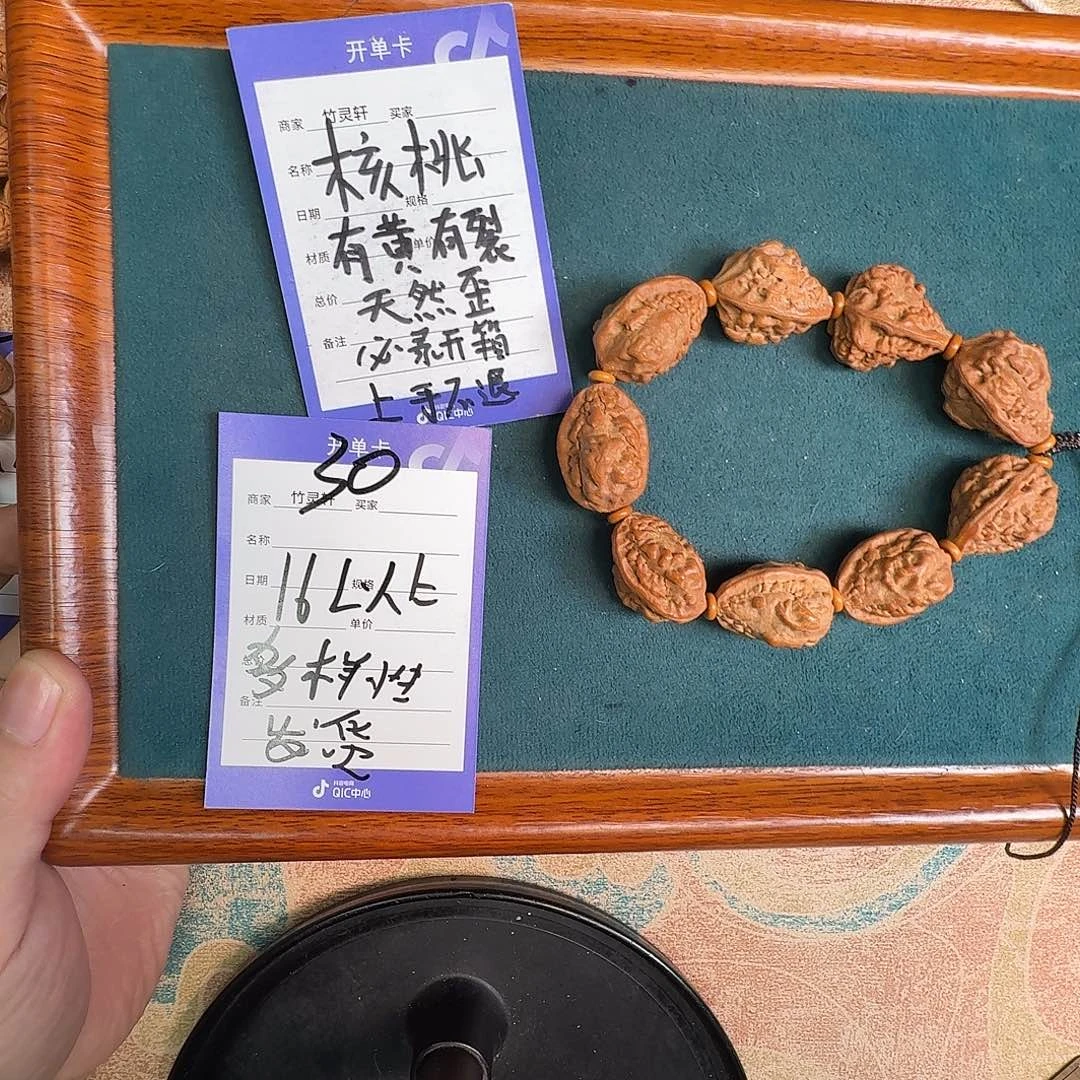 开单卡
商家 竹灵轩 买家
名称 核桃
日期 规格
材质 有黄有裂 单价
总价 天然歪
备注 必录开箱
上手不退
抖音电商
QIC中心
开单卡
30
商家 竹灵轩 买家
名称
日期 规格
16以上
材质 单价
多样性
备注
发货
抖音电商
QIC中心